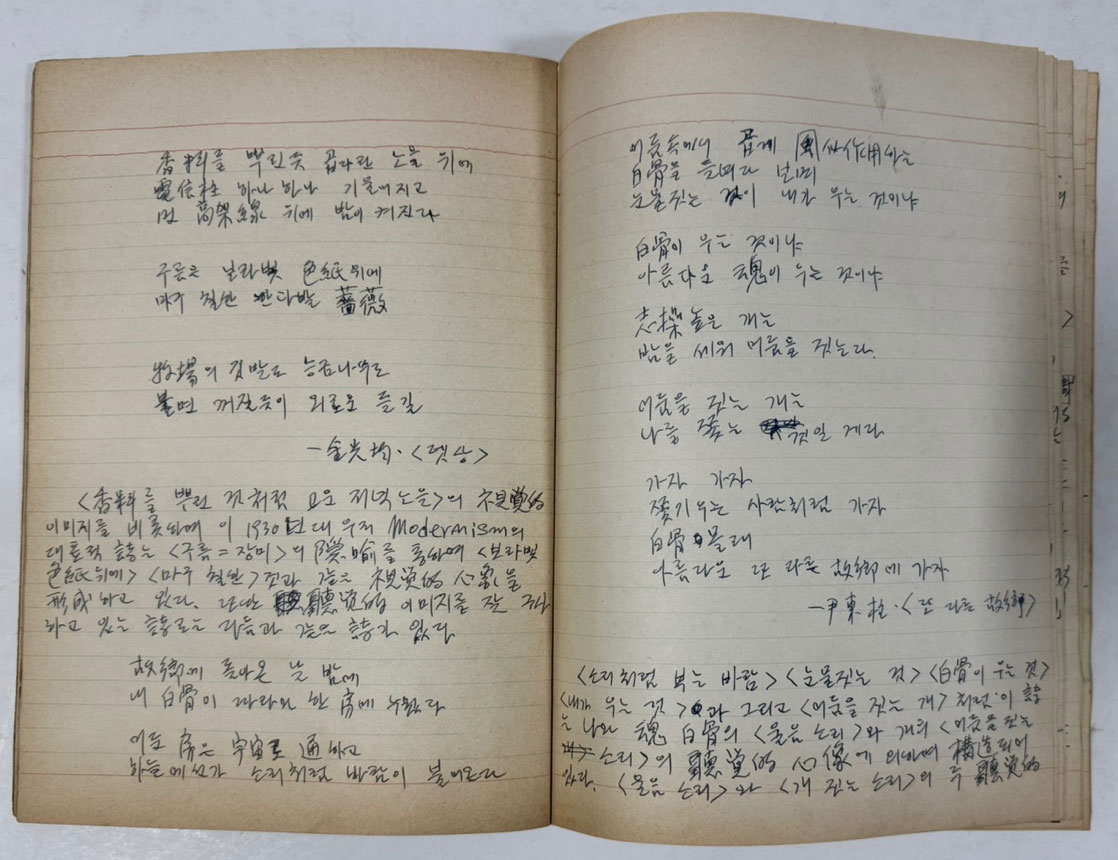 香料를 뿌린듯 곱다란 노을 위에
電信柱 하나 하나 기울어지고
먼 高架線 위에 밤이 켜진다
구름은 보라빛 色紙위에
마구 칠한 한다발 薔薇
牧場의 깃발도 능금나무도
불면 꺼질듯이 외로운 들길
—金光均·<뎃상>
<香料를 뿌린 것처럼 고운 저녁 노을>의 視覺的
이미지를 비롯하여 이 1930년대 우리 Modernism의
대표적 詩는 <구름=장미>의 隱喩를 통하여 <보라빛
色紙위에> <마구 칠한> 것과 같은 視覺的 心象을
形成하고 있다. 또한 聽覺的 이미지를 잘 구사
하고 있는 詩로는 다음과 같은 詩가 있다
故鄕에 돌아온 날 밤에
내 白骨이 따라와 한 房에 누웠다
어둔 房은 宇宙로 通하고
하늘에선가 소리처럼 바람이 불어온다
어둠속에서 곱게 風化作用하는
白骨을 들여다 보며
눈물짓는 것이 내가 우는 것이냐
白骨이 우는 것이냐
아름다운 魂이 우는 것이냐
志操 높은 개는
밤을 세워 어둠을 짖는다.
어둠을 짖는 개는
나를 쫓는 것일 게다
가자 가자
쫓기우는 사람처럼 가자
白骨 몰래
아름다운 또 다른 故鄕에 가자
—尹東柱·<또 다른 故鄕>
<소리처럼 부는 바람> <눈물짓는 것> <白骨이 우는 것>
<내가 우는 것>과 그리고 <어둠을 짖는 개>처럼 이 詩
는 나와 魂 白骨의 <울음 소리>와 개의 <어둠을 짖는
소리>의 聽覺的 心像에 의하여 構造되어
있다. <울음 소리>와 <개 짖는 소리>의 두 聽覺的